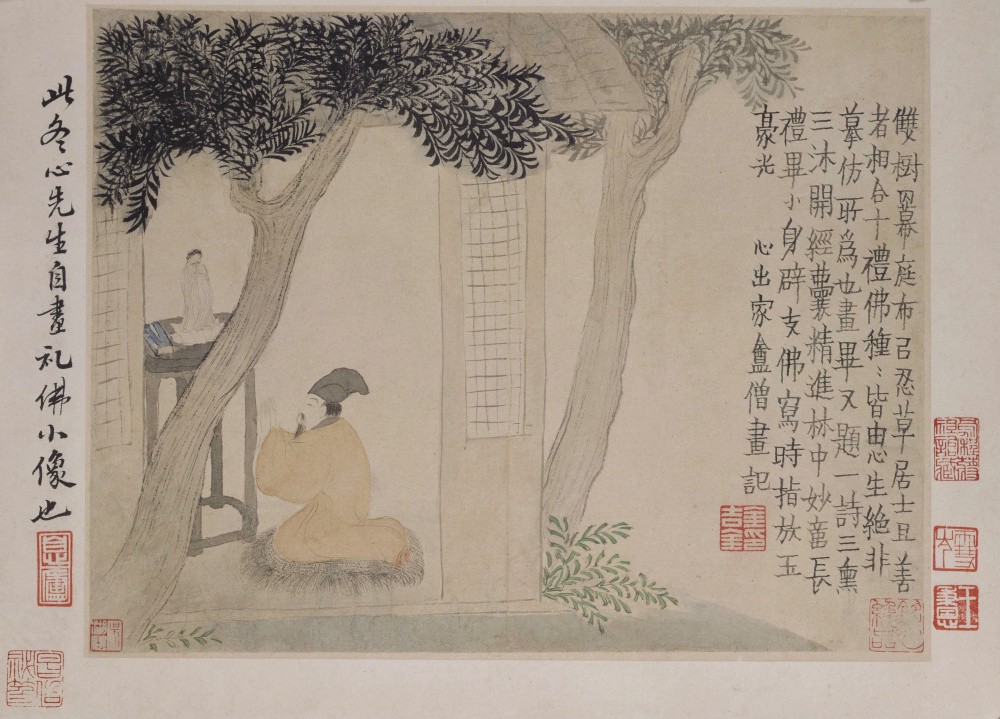 雙樹幕庭布㠯忍草居士且善
者相合十禮佛種〻皆由心生絶非
摹仿所爲也畫畢又題一詩三熏
三沐開經囊精進林中妙長
禮畢小身辟支佛寫時指放玉
豪光 心出家盦僧畫記
金吉金印
此冬心先生自畫礼佛小像也
息廬